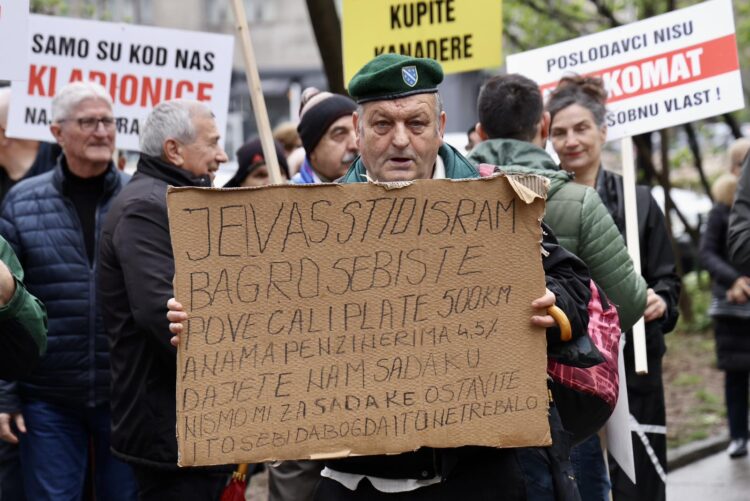 SAMO SU KOD NAS
KLADIONICE
KUPITE
KANADERE
POSLODAVCI NISU
OSOBNU VLAST !
JELVAS STID I SRAM
BAGRO SEBI STE
POVEĆALI PLATE 500 KM
A NAMA PENZINERIMA 4,5%
DAJETE NAM SADAKU
NISMO MI ZA SADAKE OSTAVITE
I TO SEBI DABOGDA I TO NETREBALO